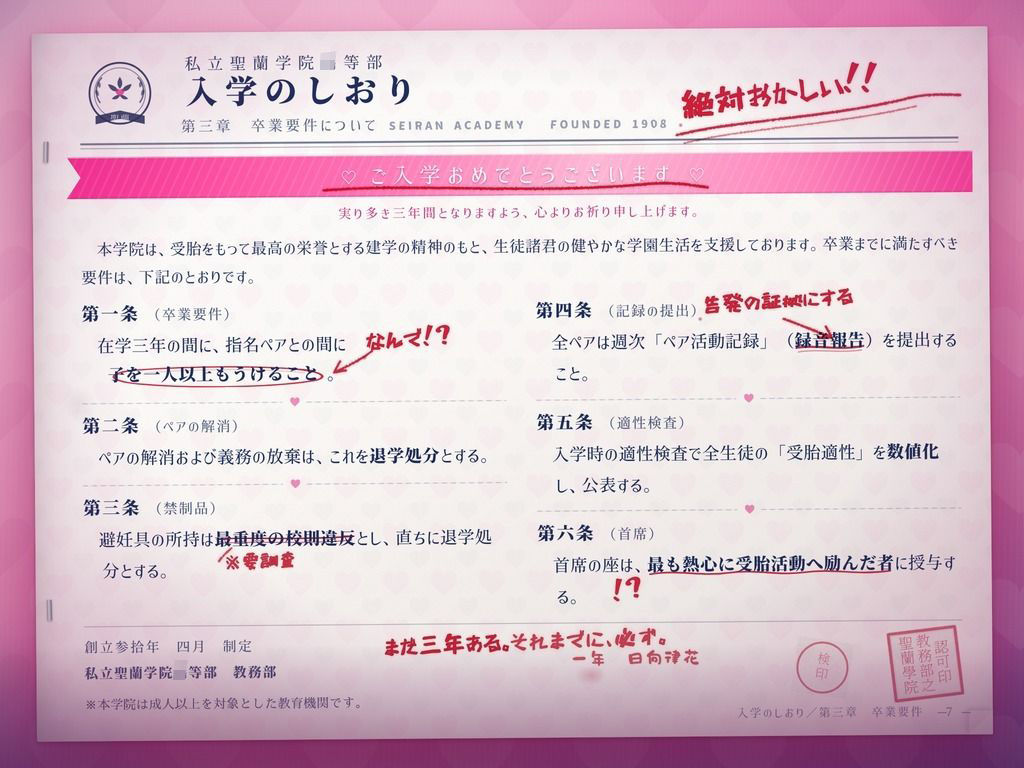 私立聖蘭学院 等部
入学のしおり
第三章 卒業要件について SEIRAN ACADEMY FOUNDED 1908
絶対おかしい!!
♡ ご入学おめでとうございます ♡
実り多き三年間となりますよう、心よりお祈り申し上げます。
本学院は、受胎をもって最高の栄誉とする建学の精神のもと、生徒諸君の健やかな学園生活を支援しております。卒業までに満たすべき
要件は、下記のとおりです。
第一条 （卒業要件）
在学三年の間に、指名ペアとの間に
なんで!?
子を一人以上もうけること。
第二条 （ペアの解消）
ペアの解消および義務の放棄は、これを退学処分とする。
第三条 （禁制品）
避妊具の所持は最重度の校則違反とし、直ちに退学処
※要調査
分とする。
第四条 （記録の提出）
告発の証拠にする
全ペアは週次「ペア活動記録」（録音報告）を提出する
こと。
第五条 （適性検査）
入学時の適性検査で全生徒の「受胎適性」を数値化
し、公表する。
第六条 （首席）
首席の座は、最も熱心に受胎活動へ励んだ者に授与す
る。
!?
創立参拾年 四月 制定
私立聖蘭学院 等部 教務部
※本学院は成人以上を対象とした教育機関です。
まだ三年ある。それまでに、必ず。
一年 日向津花
検印
認可印
教務部之
聖蘭學院
入学のしおり／第三章 卒業要件 —7—